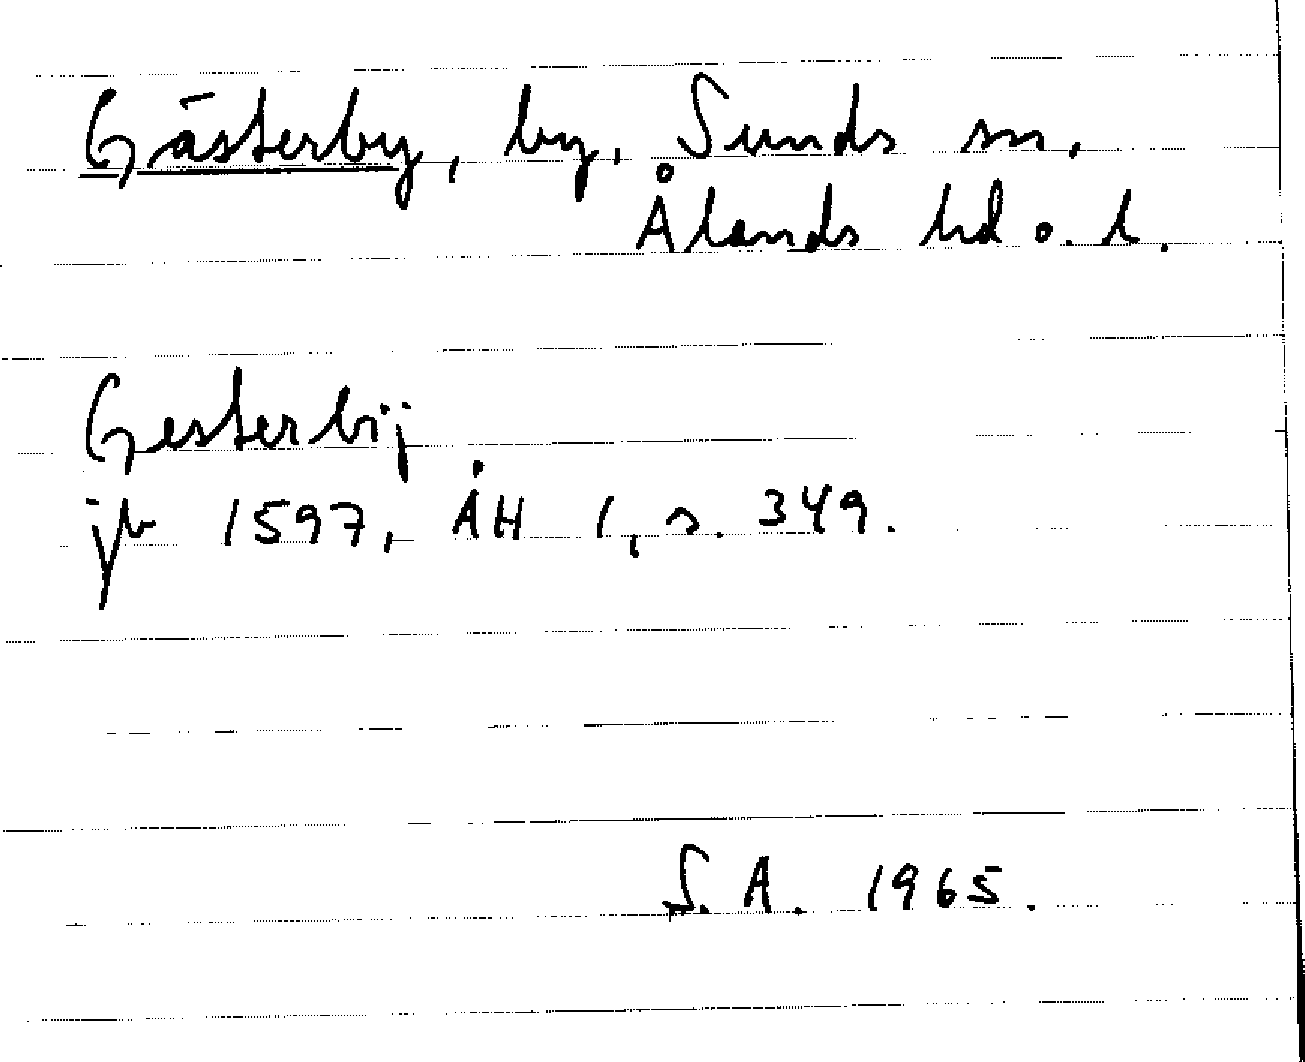 Gästerby, by, Sunds sn,
Ålands hd o. l.
Gesterbij
jb 1597, ÅH 1, s. 349.
S. A. 1965.